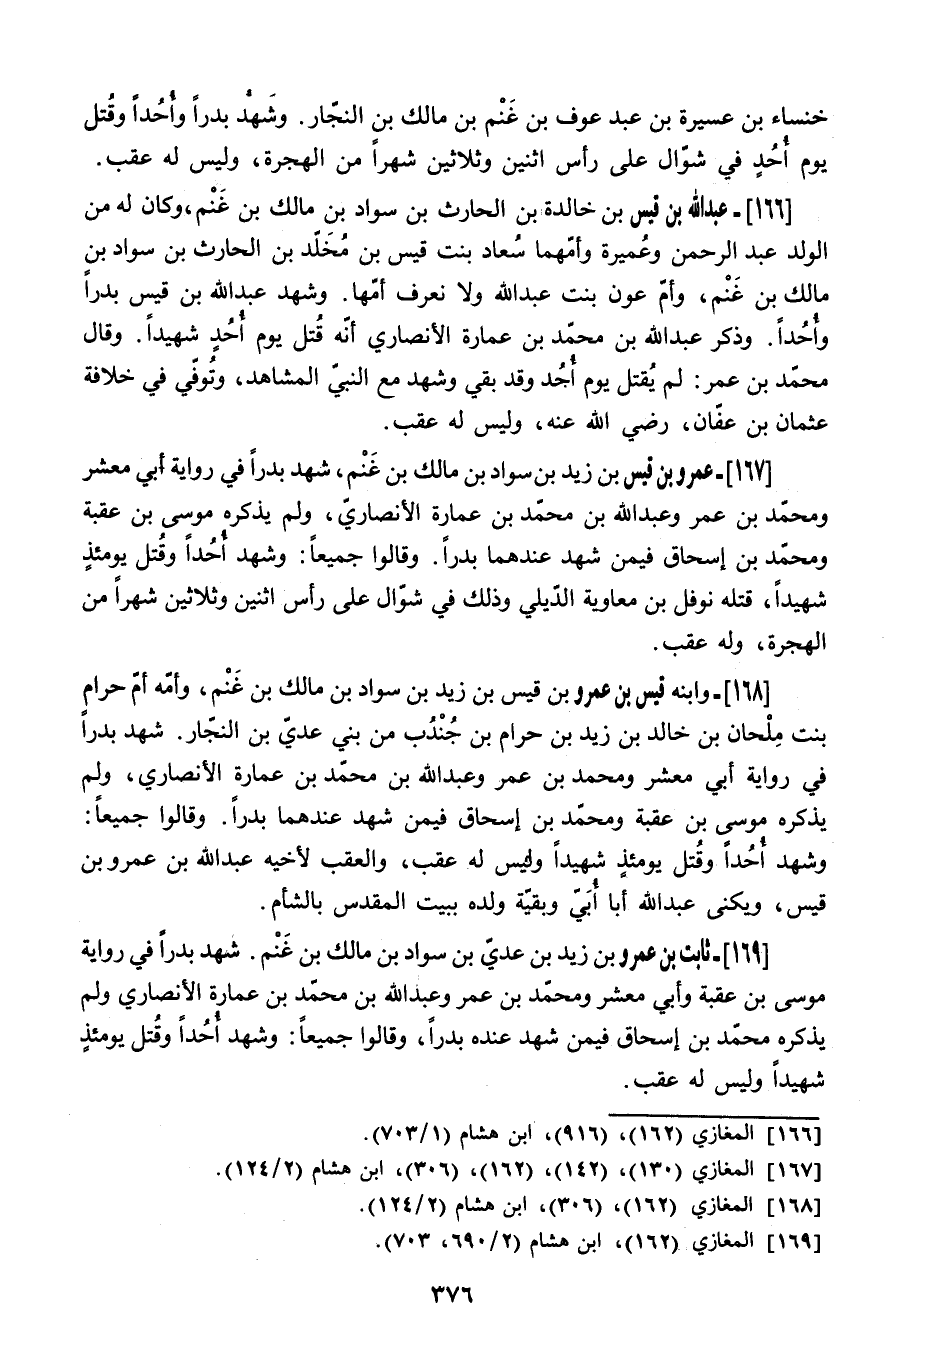 خنساء بن عسيرة بن عبد عوف بن غَنْم بن مالك بن النجّار. وشَهِدْ بدراً وأُحُداً وقُتل
يوم أُحُدٍ في شوّال على رأس اثنين وثلاثين شهراً من الهجرة، وليس له عقب.
[١٦٦]ـ عبدالله بن قيس بن خالدة بن الحارث بن سواد بن مالك بن غَنْم،وكان له من
الولد عبد الرحمن وعُميرة وأمّهما سُعاد بنت قيس بن مُخَلّد بن الحارث بن سواد بن
مالك بن غَنْم، وأمّ عون بنت عبدالله ولا نعرف أمّها. وشهد عبدالله بن قيس بدراً
وأُحُداً. وذكر عبدالله بن محمّد بن عمارة الأنصاري أنّه قُتل يوم أُحُدٍ شهيداً. وقال
محمّد بن عمر: لم يُقتل يوم أُجُد وقد بقي وشهد مع النبيّ المشاهد، وتُوفّي في خلافة
عثمان بن عفّان، رضي الله عنه، وليس له عقب.
[١٦٧]ـ عمرو بن قيس بن زيد بن سواد بن مالك بن غَنْم، شهد بدراً في رواية أبي معشر
ومحمّد بن عمر وعبدالله بن محمّد بن عمارة الأنصاريّ، ولم يذكره موسى بن عقبة
ومحمّد بن إسحاق فيمن شهد عندهما بدراً. وقالوا جميعاً: وشهد أُحُداً وقُتل يومئذٍ
شهيداً، قتله نوفل بن معاوية الدّيلي وذلك في شوّال على رأس اثنين وثلاثين شهراً من
الهجرة، وله عقب.
[١٦٨]ـ وابنه قيس بن عمرو بن قيس بن زيد بن سواد بن مالك بن غَنْم، وأمّه أمّ حرام
بنت مِلْحان بن خالد بن زيد بن حرام بن جُنْدُب من بني عديّ بن النجّار. شهد بدراً
في رواية أبي معشر ومحمد بن عمر وعبدالله بن محمّد بن عمارة الأنصاري، ولم
يذكره موسى بن عقبة ومحمّد بن إسحاق فيمن شهد عندهما بدراً. وقالوا جميعاً:
وشهد أُحُداً وقُتل يومئذٍ شهيداً وليس له عقب، والعقب لأخيه عبدالله بن عمرو بن
قيس، ويكنى عبدالله أبا أُبَيّ وبقيّة ولده ببيت المقدس بالشأم.
[١٦٩]ـ ثابت بن عمرو بن زيد بن عديّ بن سواد بن مالك بن غَنْم. شهد بدراً في رواية
موسى بن عقبة وأبي معشر ومحمّد بن عمر وعبدالله بن محمّد بن عمارة الأنصاري ولم
يذكره محمّد بن إسحاق فيمن شهد عنده بدراً، وقالوا جميعاً: وشهد أُحُداً وقُتل يومئذٍ
شهيداً وليس له عقب.
[١٦٦] المغازي (١٦٢)، (٩١٦)، ابن هشام (٧٠٣/١).
[١٦٧] المغازي (١٣٠)، (١٤٢)، (١٦٢)، (٣٠٦)، ابن هشام (١٢٤/٢).
[١٦٨] المغازي (١٦٢)، (٣٠٦)، ابن هشام (١٢٤/٢).
[١٦٩] المغازي (١٦٢)، ابن هشام (٦٩٠/٢، ٧٠٣).
٣٧٦